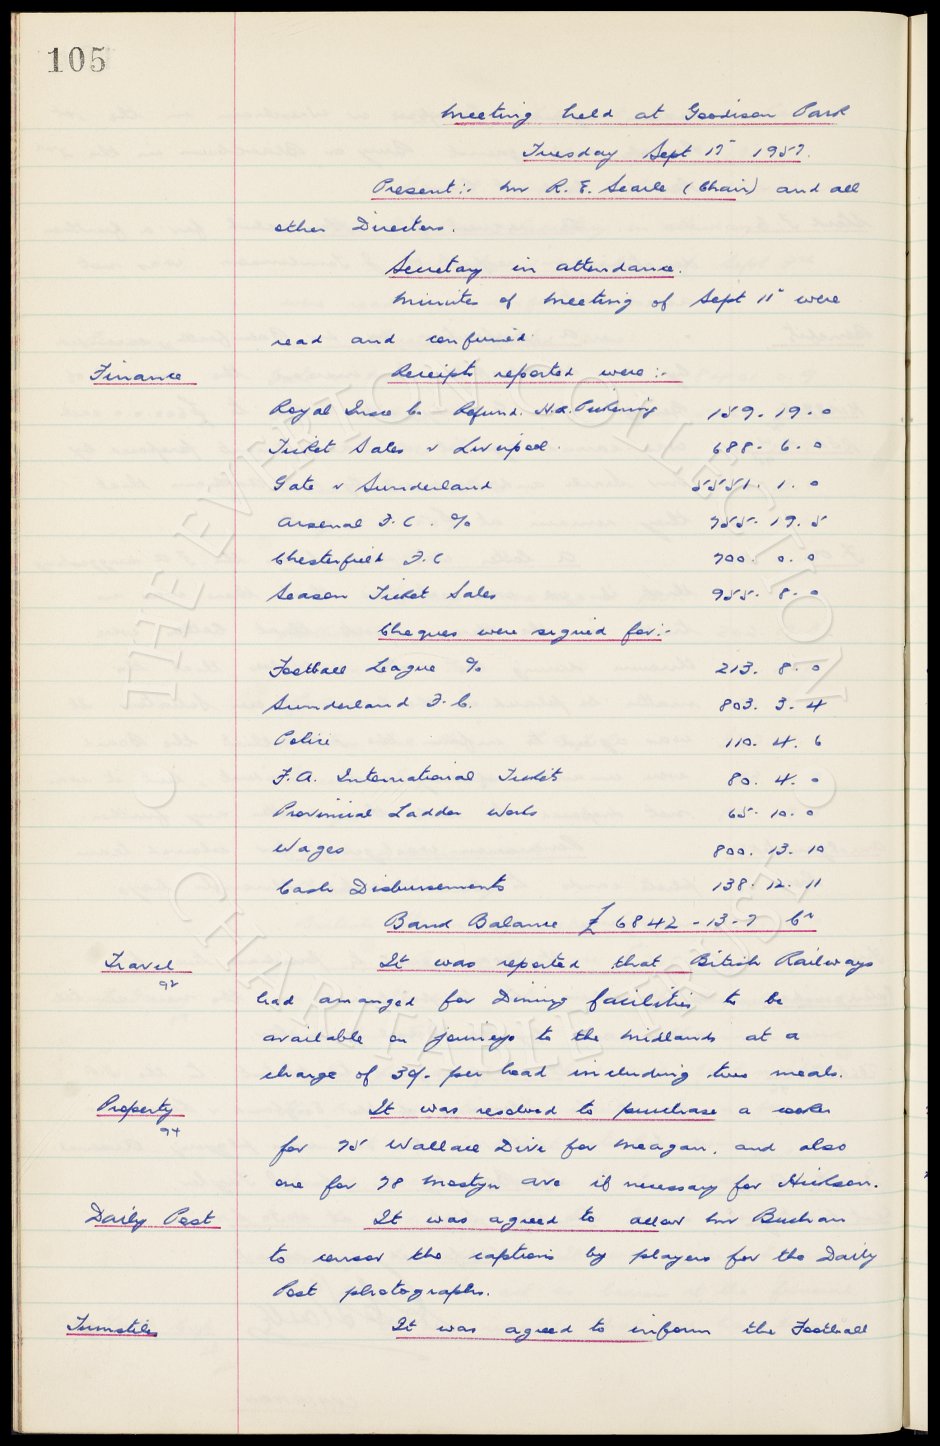 105
Meeting held at Goodison Park
Tuesday Sept 17" 1957.
Present:- Mr R. E. Searle (Chair) and all
other Directors.
Secretary in attendance.
Minutes of Meeting of Sept 11" were
read and confirmed
Finance Receipts reported were:-
Royal Insce Co Refund. H.A. Pickering 159. 19. 0
Ticket Sales v Liverpool. 688. 6. 0
Gate v Sunderland 5551. 1. 0
Arsenal F.C. % 755. 19. 5
Chesterfield F.C 700. 0. 0
Season Ticket Sales 955. 8. 0
Cheques were signed for:-
Football League % 213. 8. 0
Sunderland F.C. 803. 3. 4
Police 110. 4. 6
F.A. International Tickets 80. 4. 0
Provincial Ladder Works 65. 10. 0
Wages 800. 13. 10
Cash Disbursements 138. 12. 11
Bank Balance £6842-13-7 Cr
Travel It was reported that British Railways
92
had arranged for Dining facilities to be
available on journeys to the Midlands at a
charge of 30/- per head including two meals.
Property It was resolved to purchase a cooker
94
for 75 Wallace Drive for Meagan, and also
one for 78 Mostyn Ave if necessary for Hickson.
Daily Post It was agreed to allow Mr Buchan
to censor the captions by players for the Daily
Post photographs.
Turnstiles It was agreed to inform the Football
THE EVERTON COLLECTION
CHARITABLE TRUST